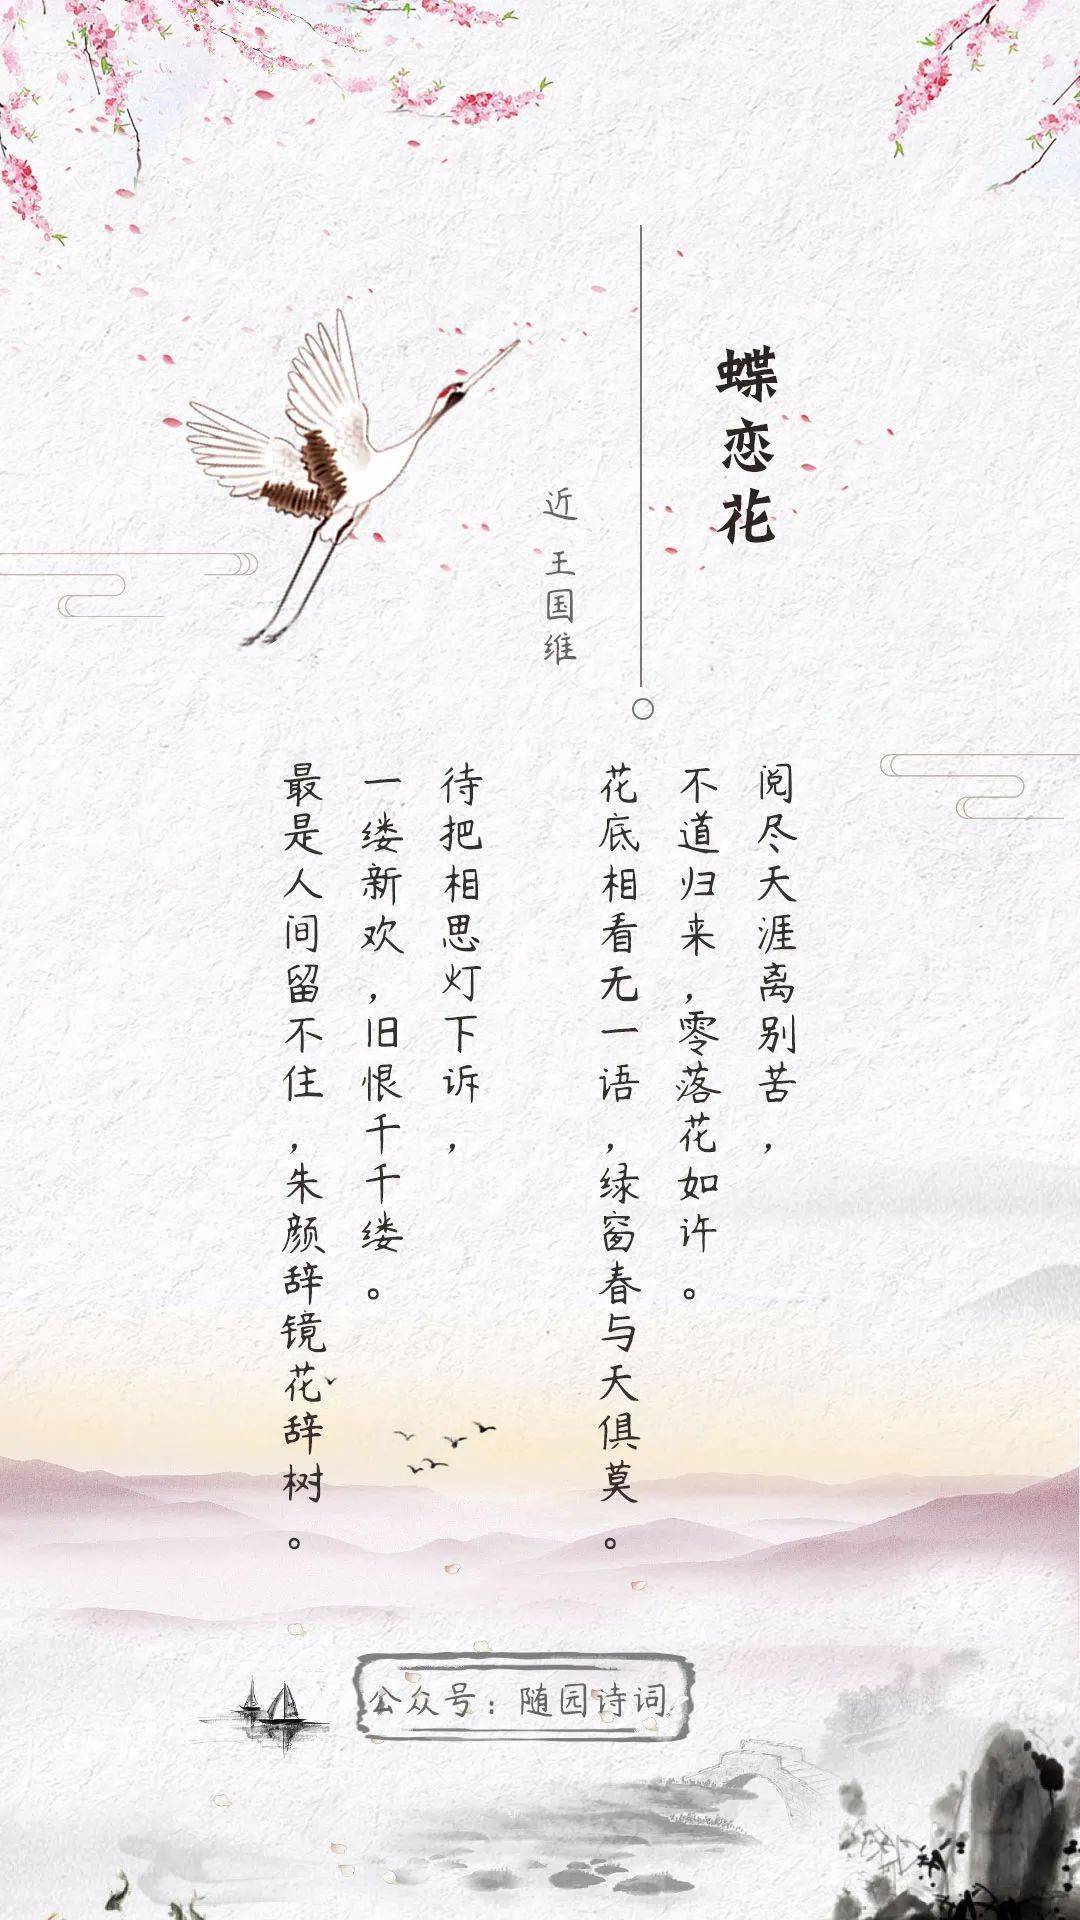 蝶恋花
近 王国维
阅尽天涯离别苦，
不道归来，零落花如许。
花底相看无一语，绿窗春与天俱莫。
待把相思灯下诉，
一缕新欢，旧恨千千缕。
最是人间留不住，朱颜辞镜花辞树。
公众号：随园诗词